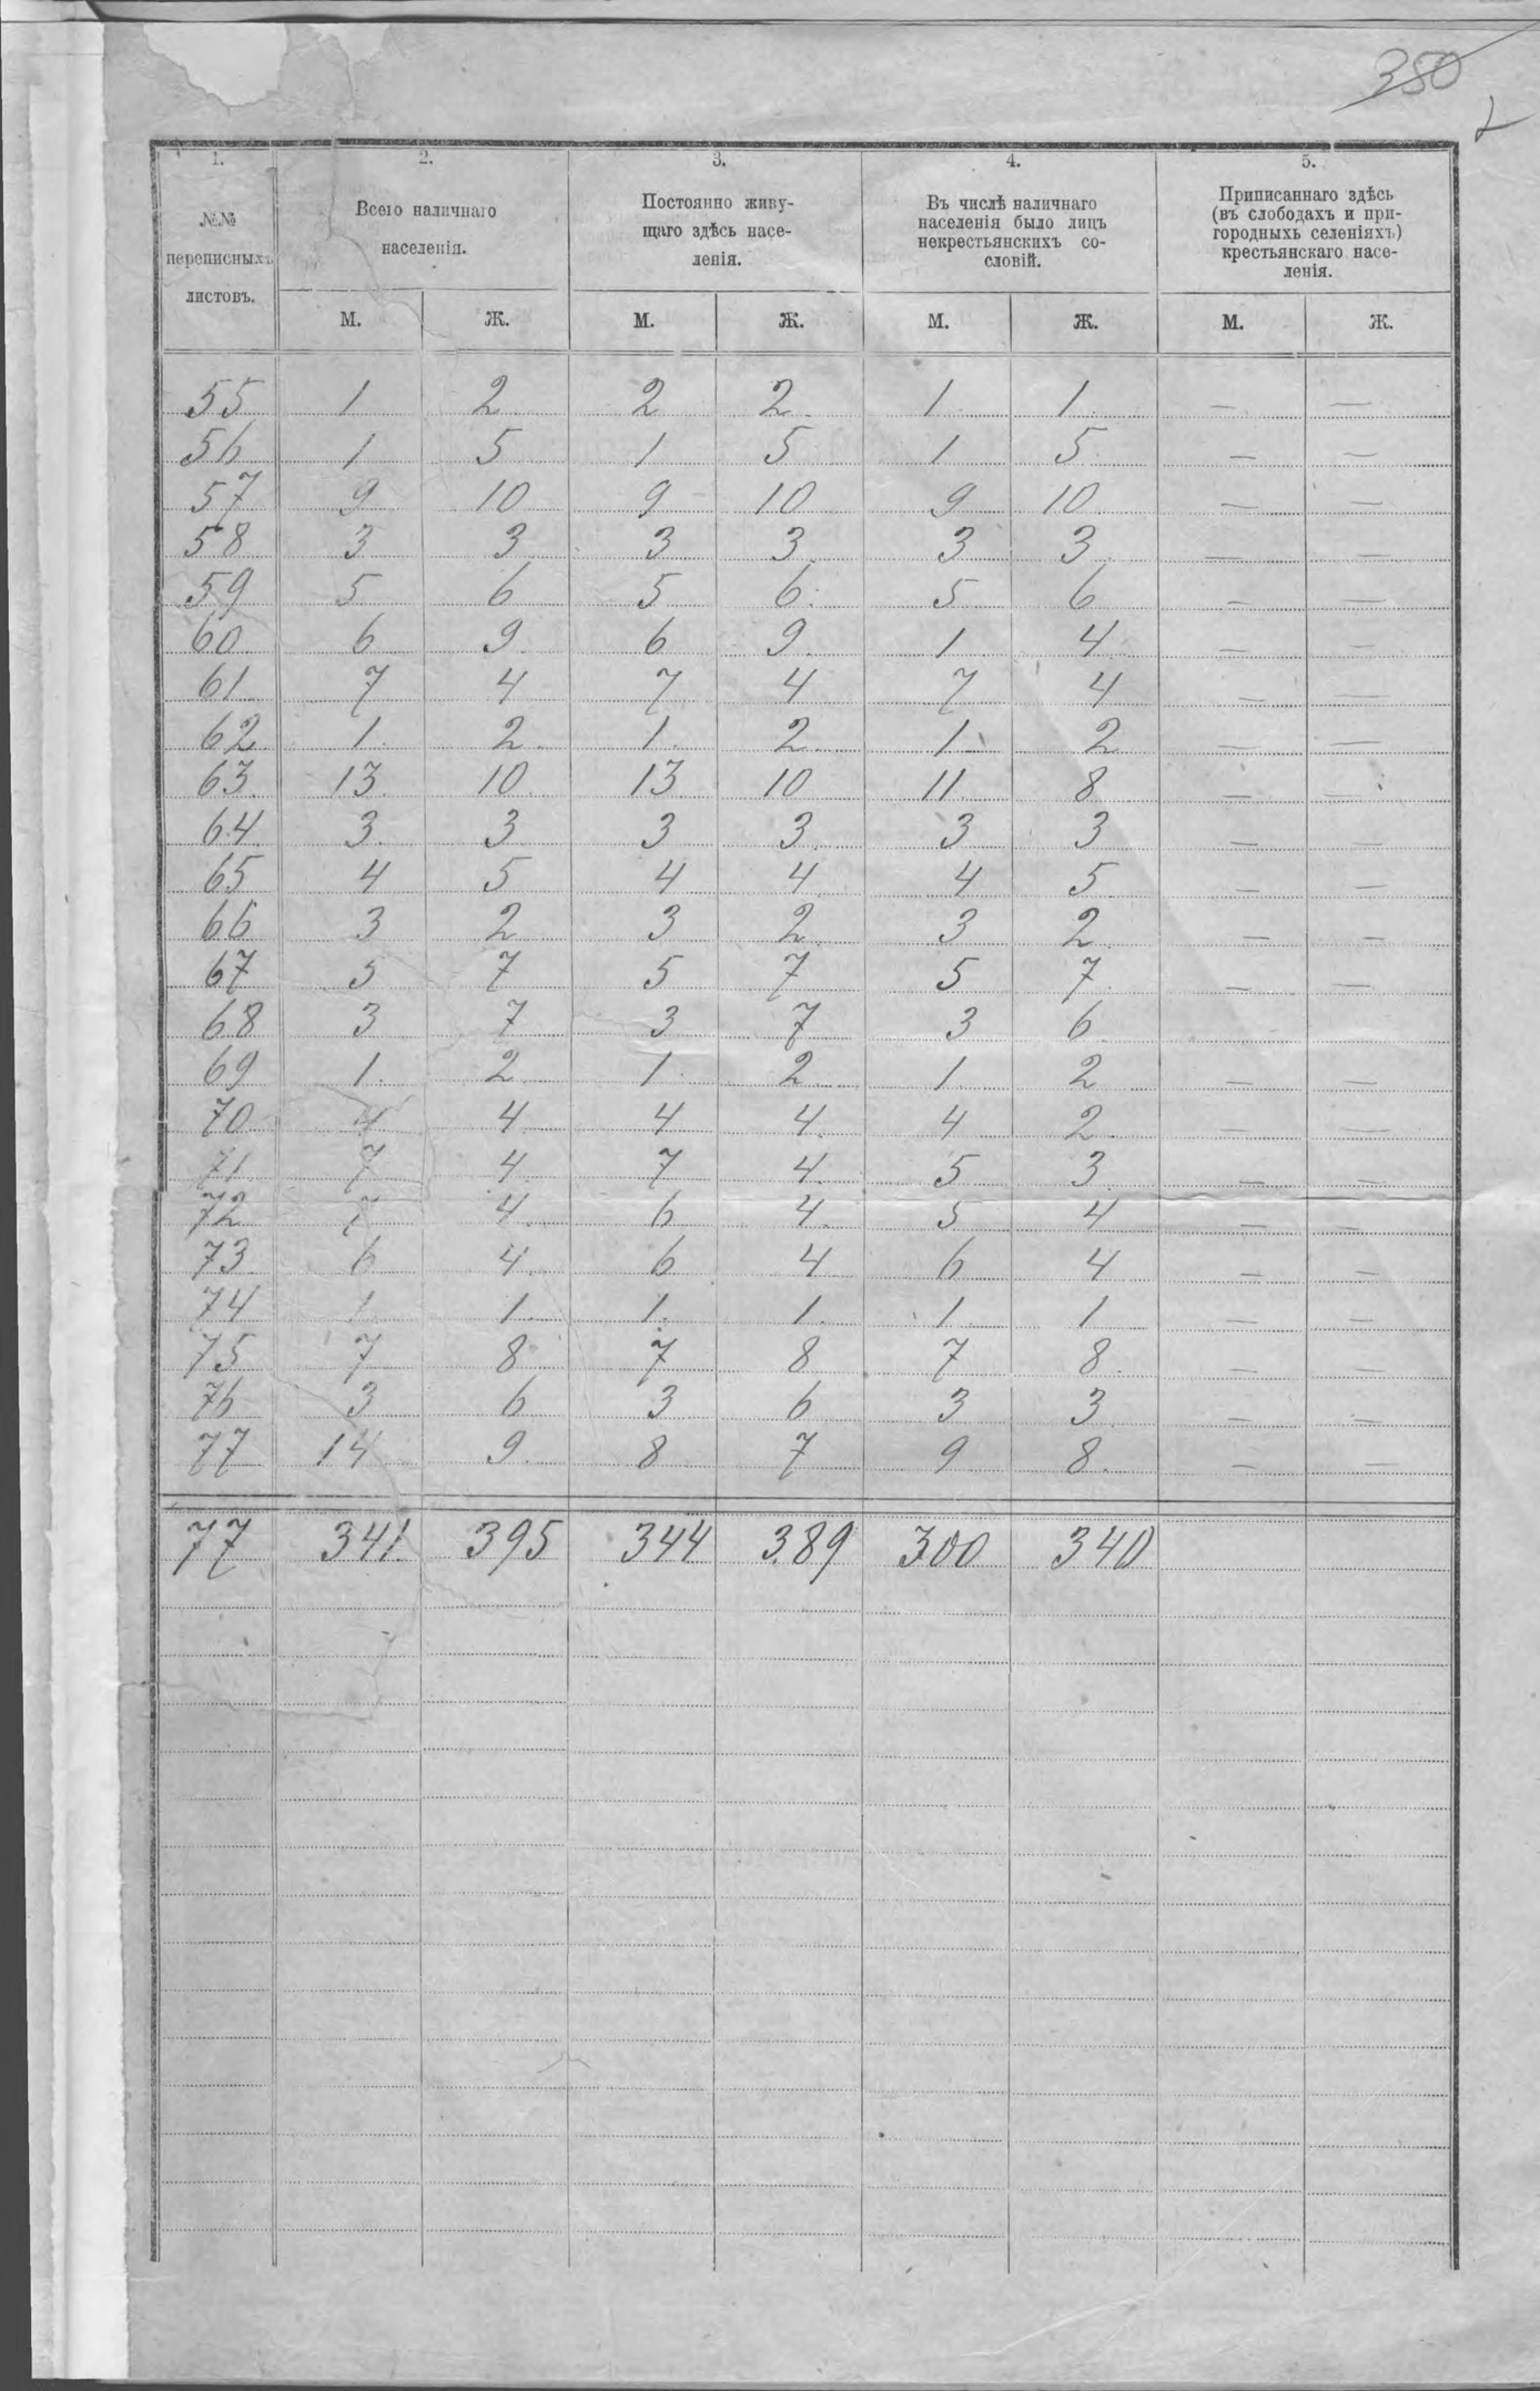 350
2
1. 2. 3. 4. 5.
№№ переписныхъ листовъ. Всего наличнаго населенія. Постоянно живущаго здѣсь населенія. Въ числѣ наличнаго населенія было лицъ некрестьянскихъ сословій. Приписаннаго здѣсь (въ слободахъ и пригородныхъ селеніяхъ) крестьянскаго населенія.
М. Ж. М. Ж. М. Ж. М. Ж.
55 1 2 2 2 1 1 — —
56 1 5 1 5 1 5 — —
57 9 10 9 10 9 10 — —
58 3 3 3 3 3 3 — —
59 5 6 5 6 5 6 — —
60 6 9 6 9 1 4 — —
61 7 4 7 4 7 4 — —
62 1 2 1 2 1 2 — —
63 13 10 13 10 11 8 — —
64 3 3 3 3 3 3 — —
65 4 5 4 4 4 5 — —
66 3 2 3 2 3 2 — —
67 5 7 5 7 5 7 — —
68 3 7 3 7 3 6
69 1 2 1 2 1 2 — —
70 4 4 4 4 4 2 — —
71 7 4 7 4 5 3 — —
72 4 6 4 5 4 — —
73 6 4 6 4 6 4 — —
74 1 1 1 1 1 1 — —
75 7 8 7 8 7 8 — —
76 3 6 3 6 3 3 — —
77 14 9 8 7 9 8 — —
77 341 395 344 389 300 340